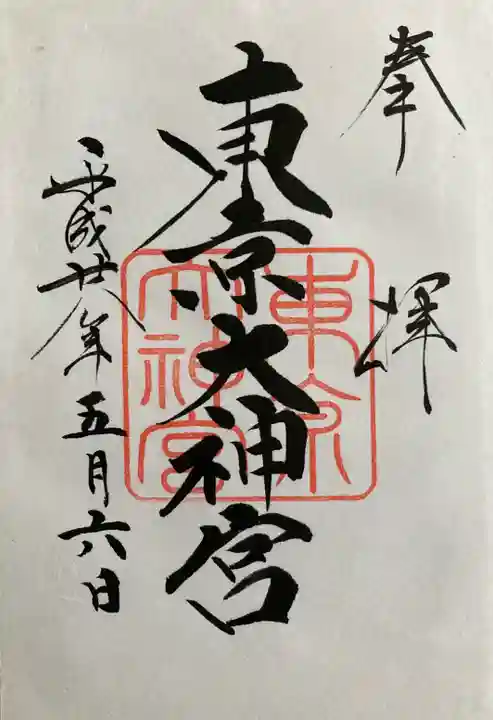 奉拝
東京大神宮
東京大神宮
平成廿八年五月六日